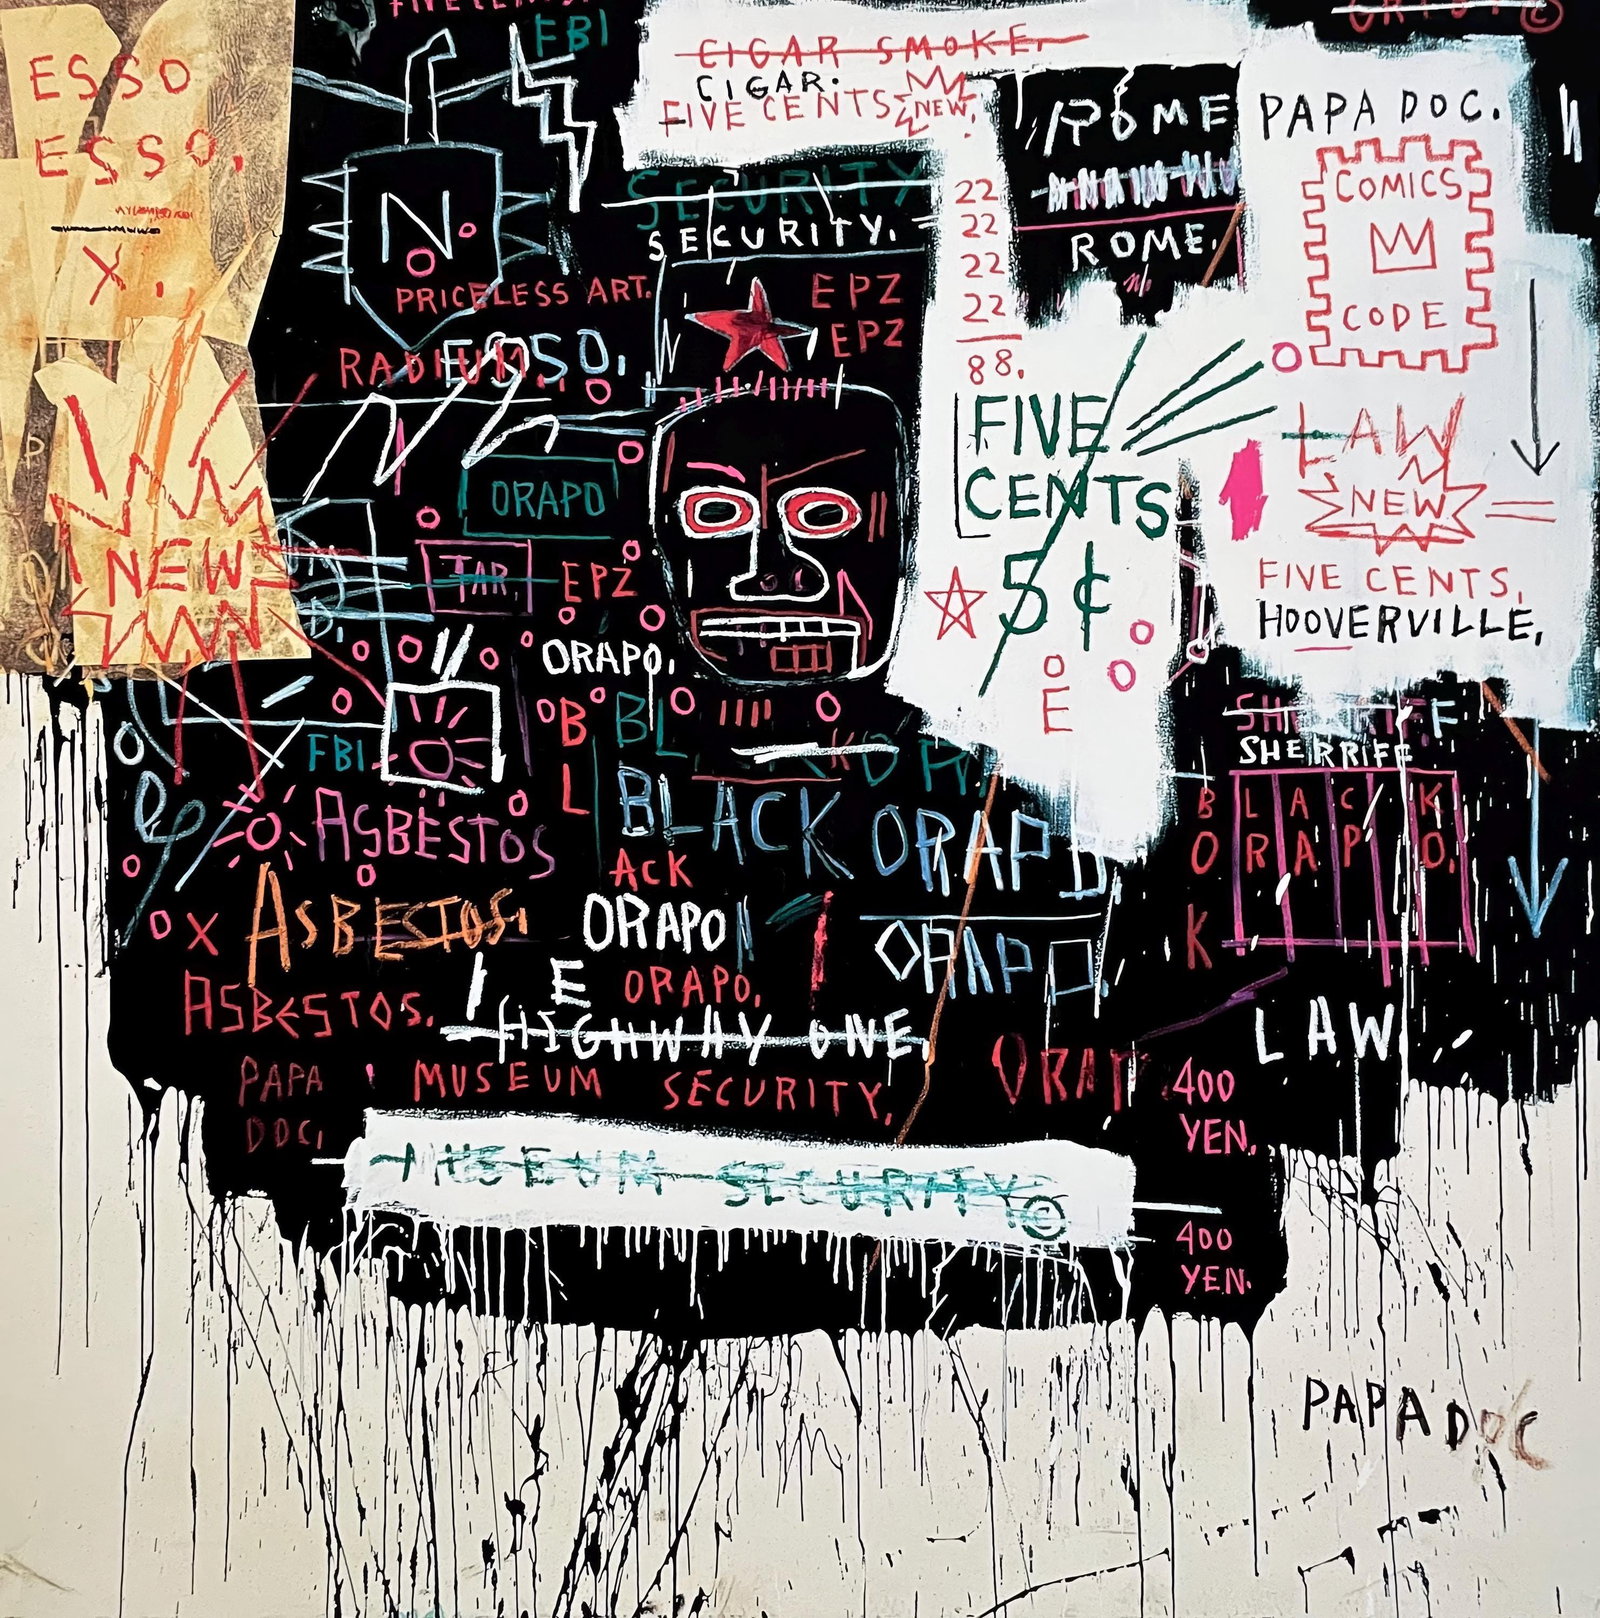 FIVE CENTS.
FBI
ESSO
ESSO.
X.
CIGAR SMOKE.
CIGAR:
FIVE CENTS
NEW.
©
ROME
ROME.
PAPA DOC.
COMICS
CODE
N.
PRICELESS ART.
RADIUM.
ESSO.
SECURITY
SECURITY.
EPZ
EPZ
22
22
22
22
88.
FIVE
CENTS
5¢
E
LAW
NEW
FIVE CENTS.
HOOVERVILLE.
NEW
ORAPO
TAR
EPZ
ORAPO.
FBI
BL
BL
ASBESTOS
ASBESTOS.
ASBESTOS.
X
BLACK ORAPO.
ACK
ORAPO
ORAPO.
ORAPO.
E
HIGHWAY ONE.
SHERRIFF
SHERRIFF
B L A C K
O R A P O.
K
LAW
PAPA
DOC.
MUSEUM SECURITY.
ORAP
400
YEN.
MUSEUM SECURITY ©
400
YEN.
PAPA DOC